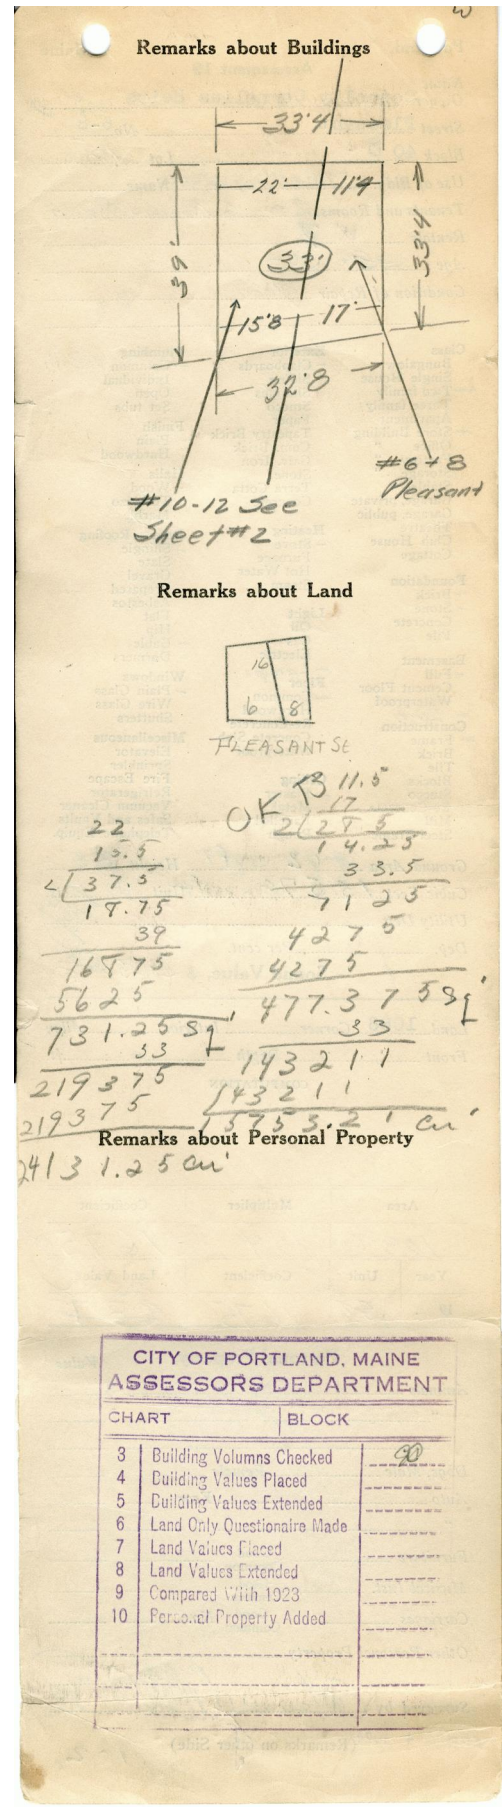 Remarks about Buildings
33'4
22' 11'4
39'
33'
33'4
15'8 17'
32'8
#6+8
Pleasant
#10-12 See
Sheet #2
Remarks about Land
16
6 8
PLEASANT St
OK
11.5
17
2 285
14.25
33.5
7125
4275
4275
477.375 Sq'
33
143211
143211
15753.21 cu'
22
15.5
2 37.5
18.75
39
16875
5625
731.25 Sq'
33
219375
219375
24131.25 cu'
Remarks about Personal Property
CITY OF PORTLAND, MAINE
ASSESSORS DEPARTMENT
CHART BLOCK
3 Building Volumns Checked
4 Building Values Placed
5 Building Values Extended
6 Land Only Questionaire Made
7 Land Values Placed
8 Land Values Extended
9 Compared With 1923
10 Personal Property Added